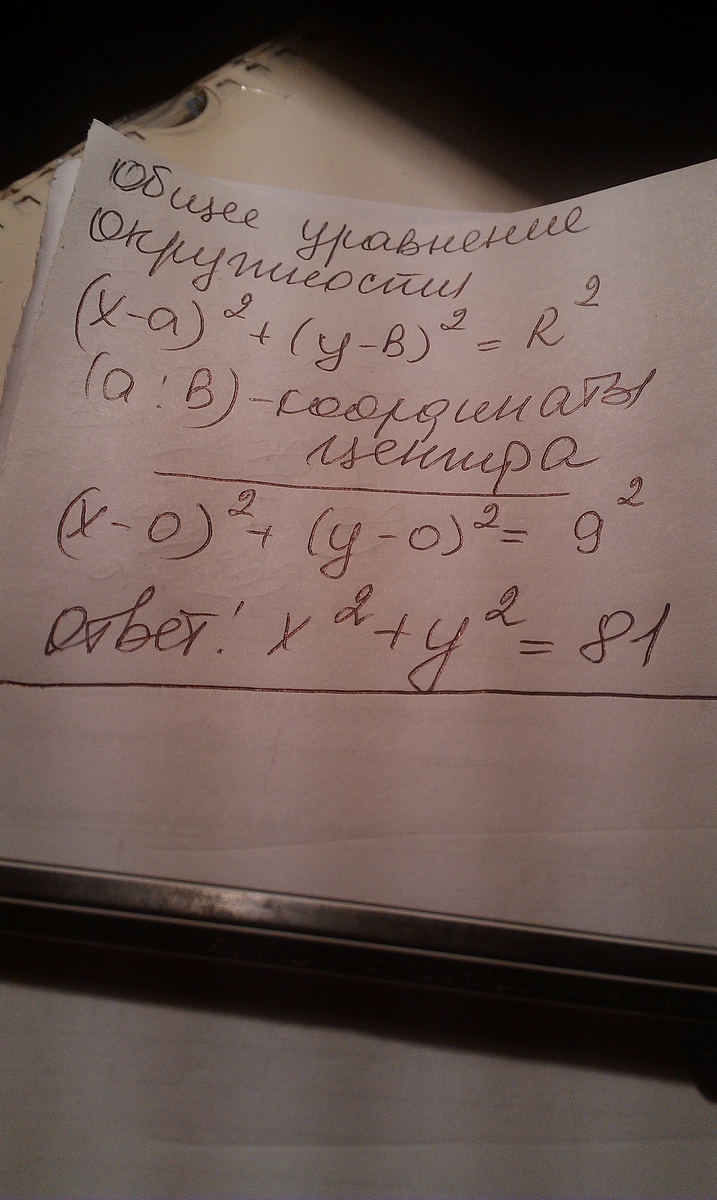 Общее уравнение
Окружности
(x-a)² + (y-в)² = R²
(a; в) - координаты
центра
(x-0)² + (y-0)² = 9²
Ответ: x² + y² = 81